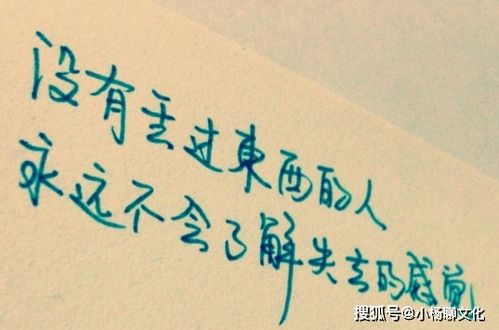 没有丢过東西的人
永远不会了解失去的感觉
搜狐号@小杨聊文化